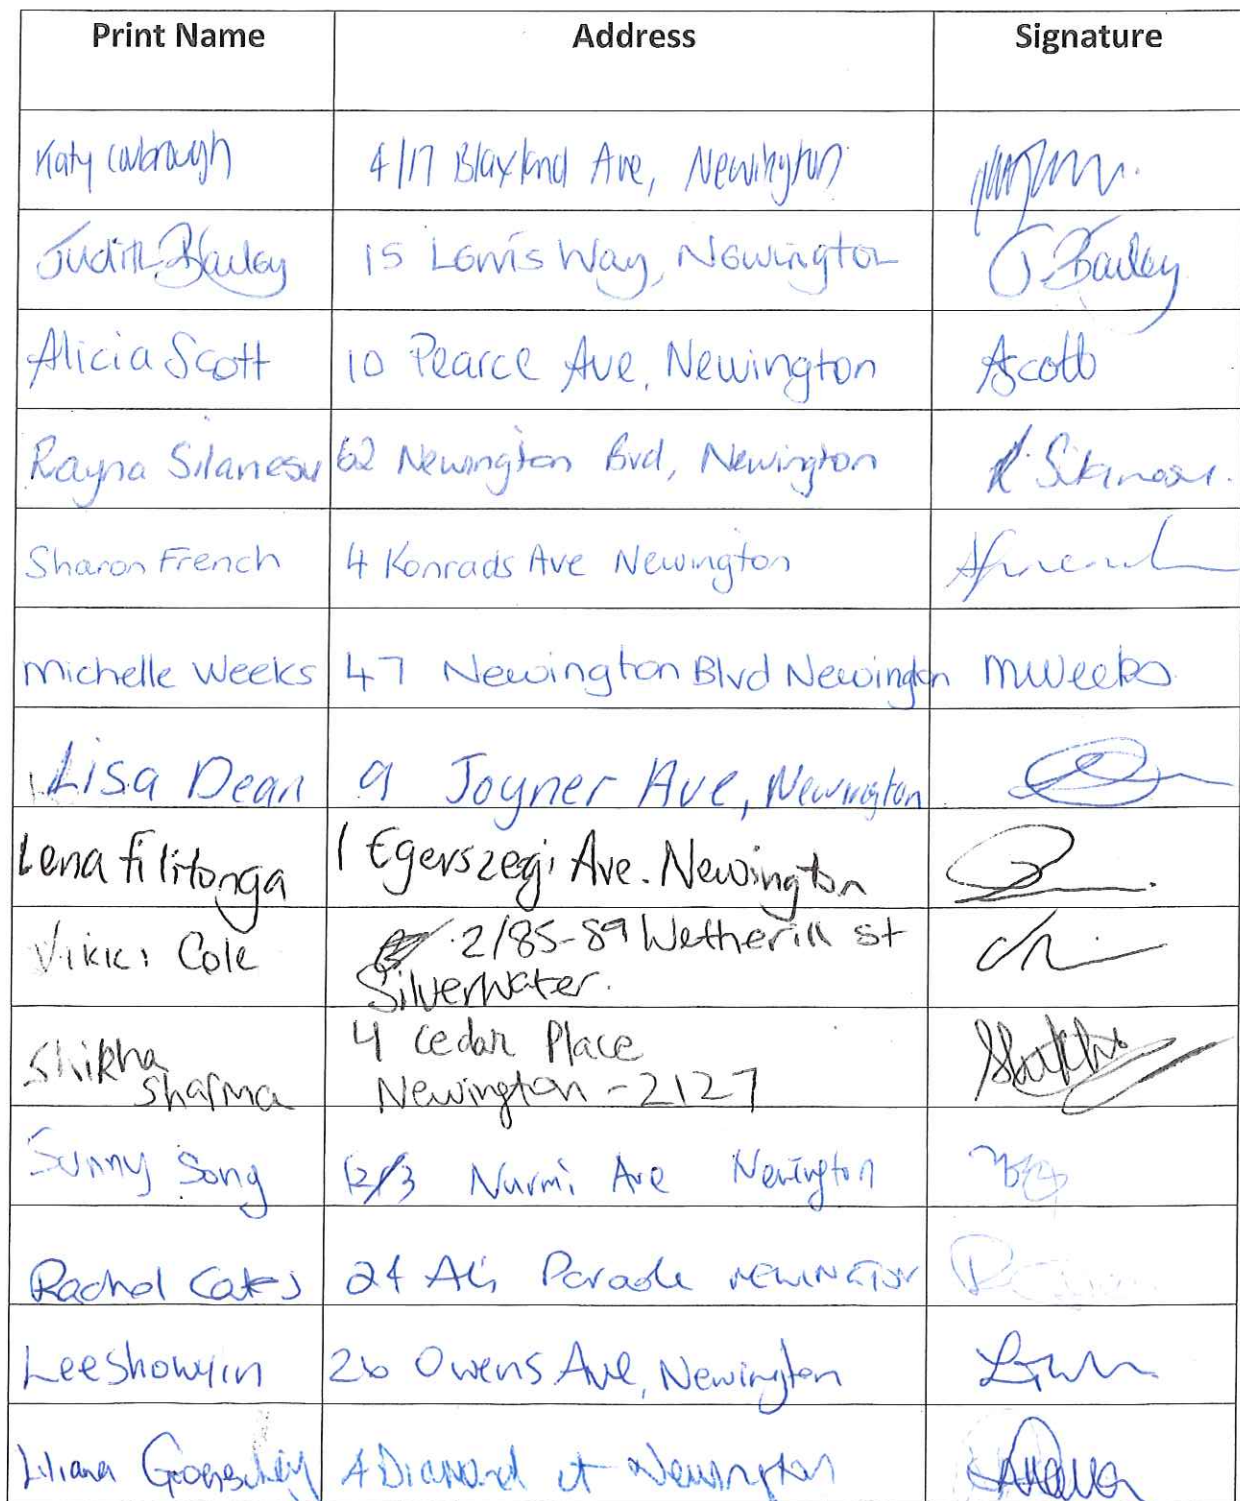 Print Name Address Signature
Katy 4/17 Blaxland Ave, Newington
Judith Bailey 15 Lewis Way, Newington J. Bailey
Alicia Scott 10 Pearce Ave, Newington AScott
Rayna Silanesu 62 Newington Bvd, Newington R. Silanesu.
Sharon French 4 Konrads Ave Newington
Michelle Weeks 47 Newington Blvd Newington MWeeks
Lisa Dean 9 Joyner Ave, Newington
Lena filitonga 1 Egerszegi Ave. Newington
Vikki Cole 2/85-89 Wetherill st
Silverwater.
Shikha 4 Cedar Place
Sharma Newington - 2127
Sunny Song 12/3 Nurmi Ave Newington
Rachel 24 Ali Parade NEWINGTON
Lee Showyin 26 Owens Ave, Newington
Liliana 4 Diamond ct Newington